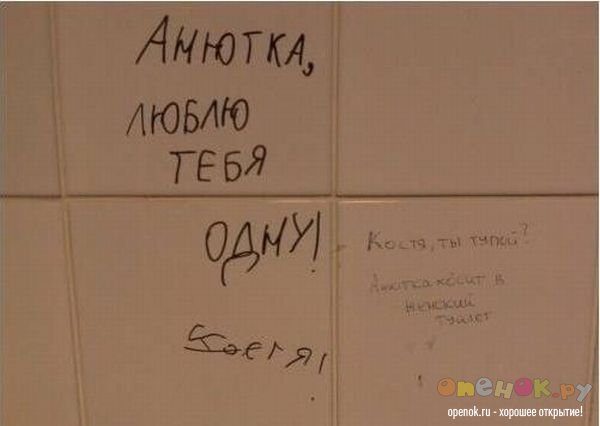 Анютка,
люблю
тебя
одну!
Костя!
Костя, ты тупой?
Анютка ходит в
женский
туалет
опенок.ру
openok.ru - хорошее открытие!